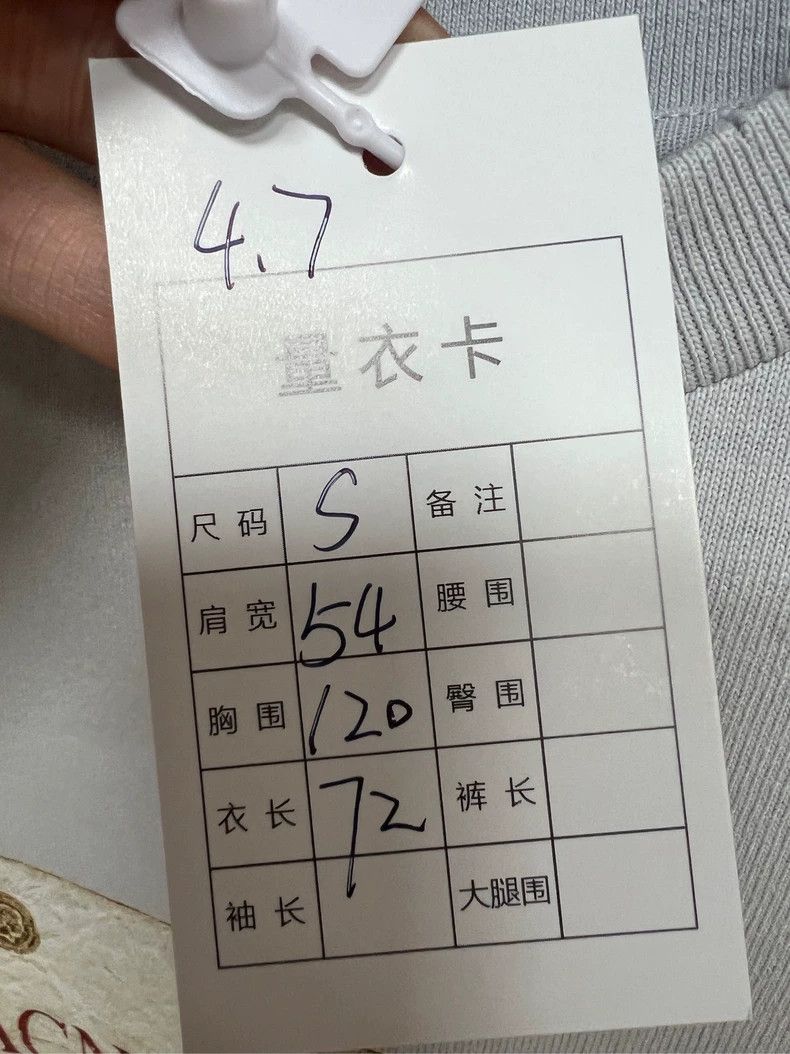 4.7
量衣卡
尺码 S 备注
肩宽 54 腰围
胸围 120 臀围
衣长 72 裤长
袖长 大腿围